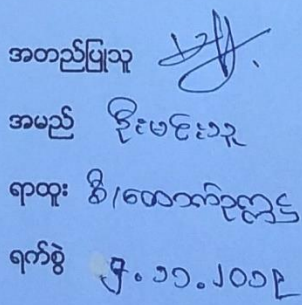 အတည်ပြုသူ
အမည် ဦးမင်းသူ
ရာထူး ဒီ/ထောက်ဥက္ကဋ္ဌ
ရက်စွဲ ၅.၁၁.၂၀၁၉